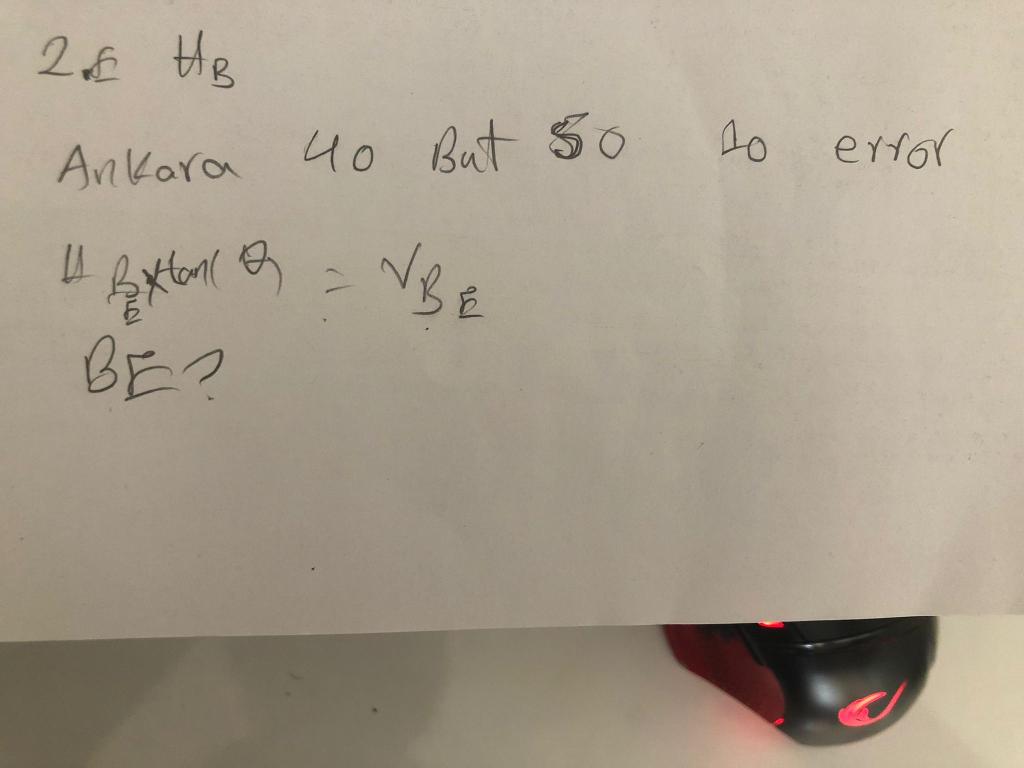 2.E HB
Ankara 40 But 50 10 error
H BE x tan( θ) = VBE
BE?